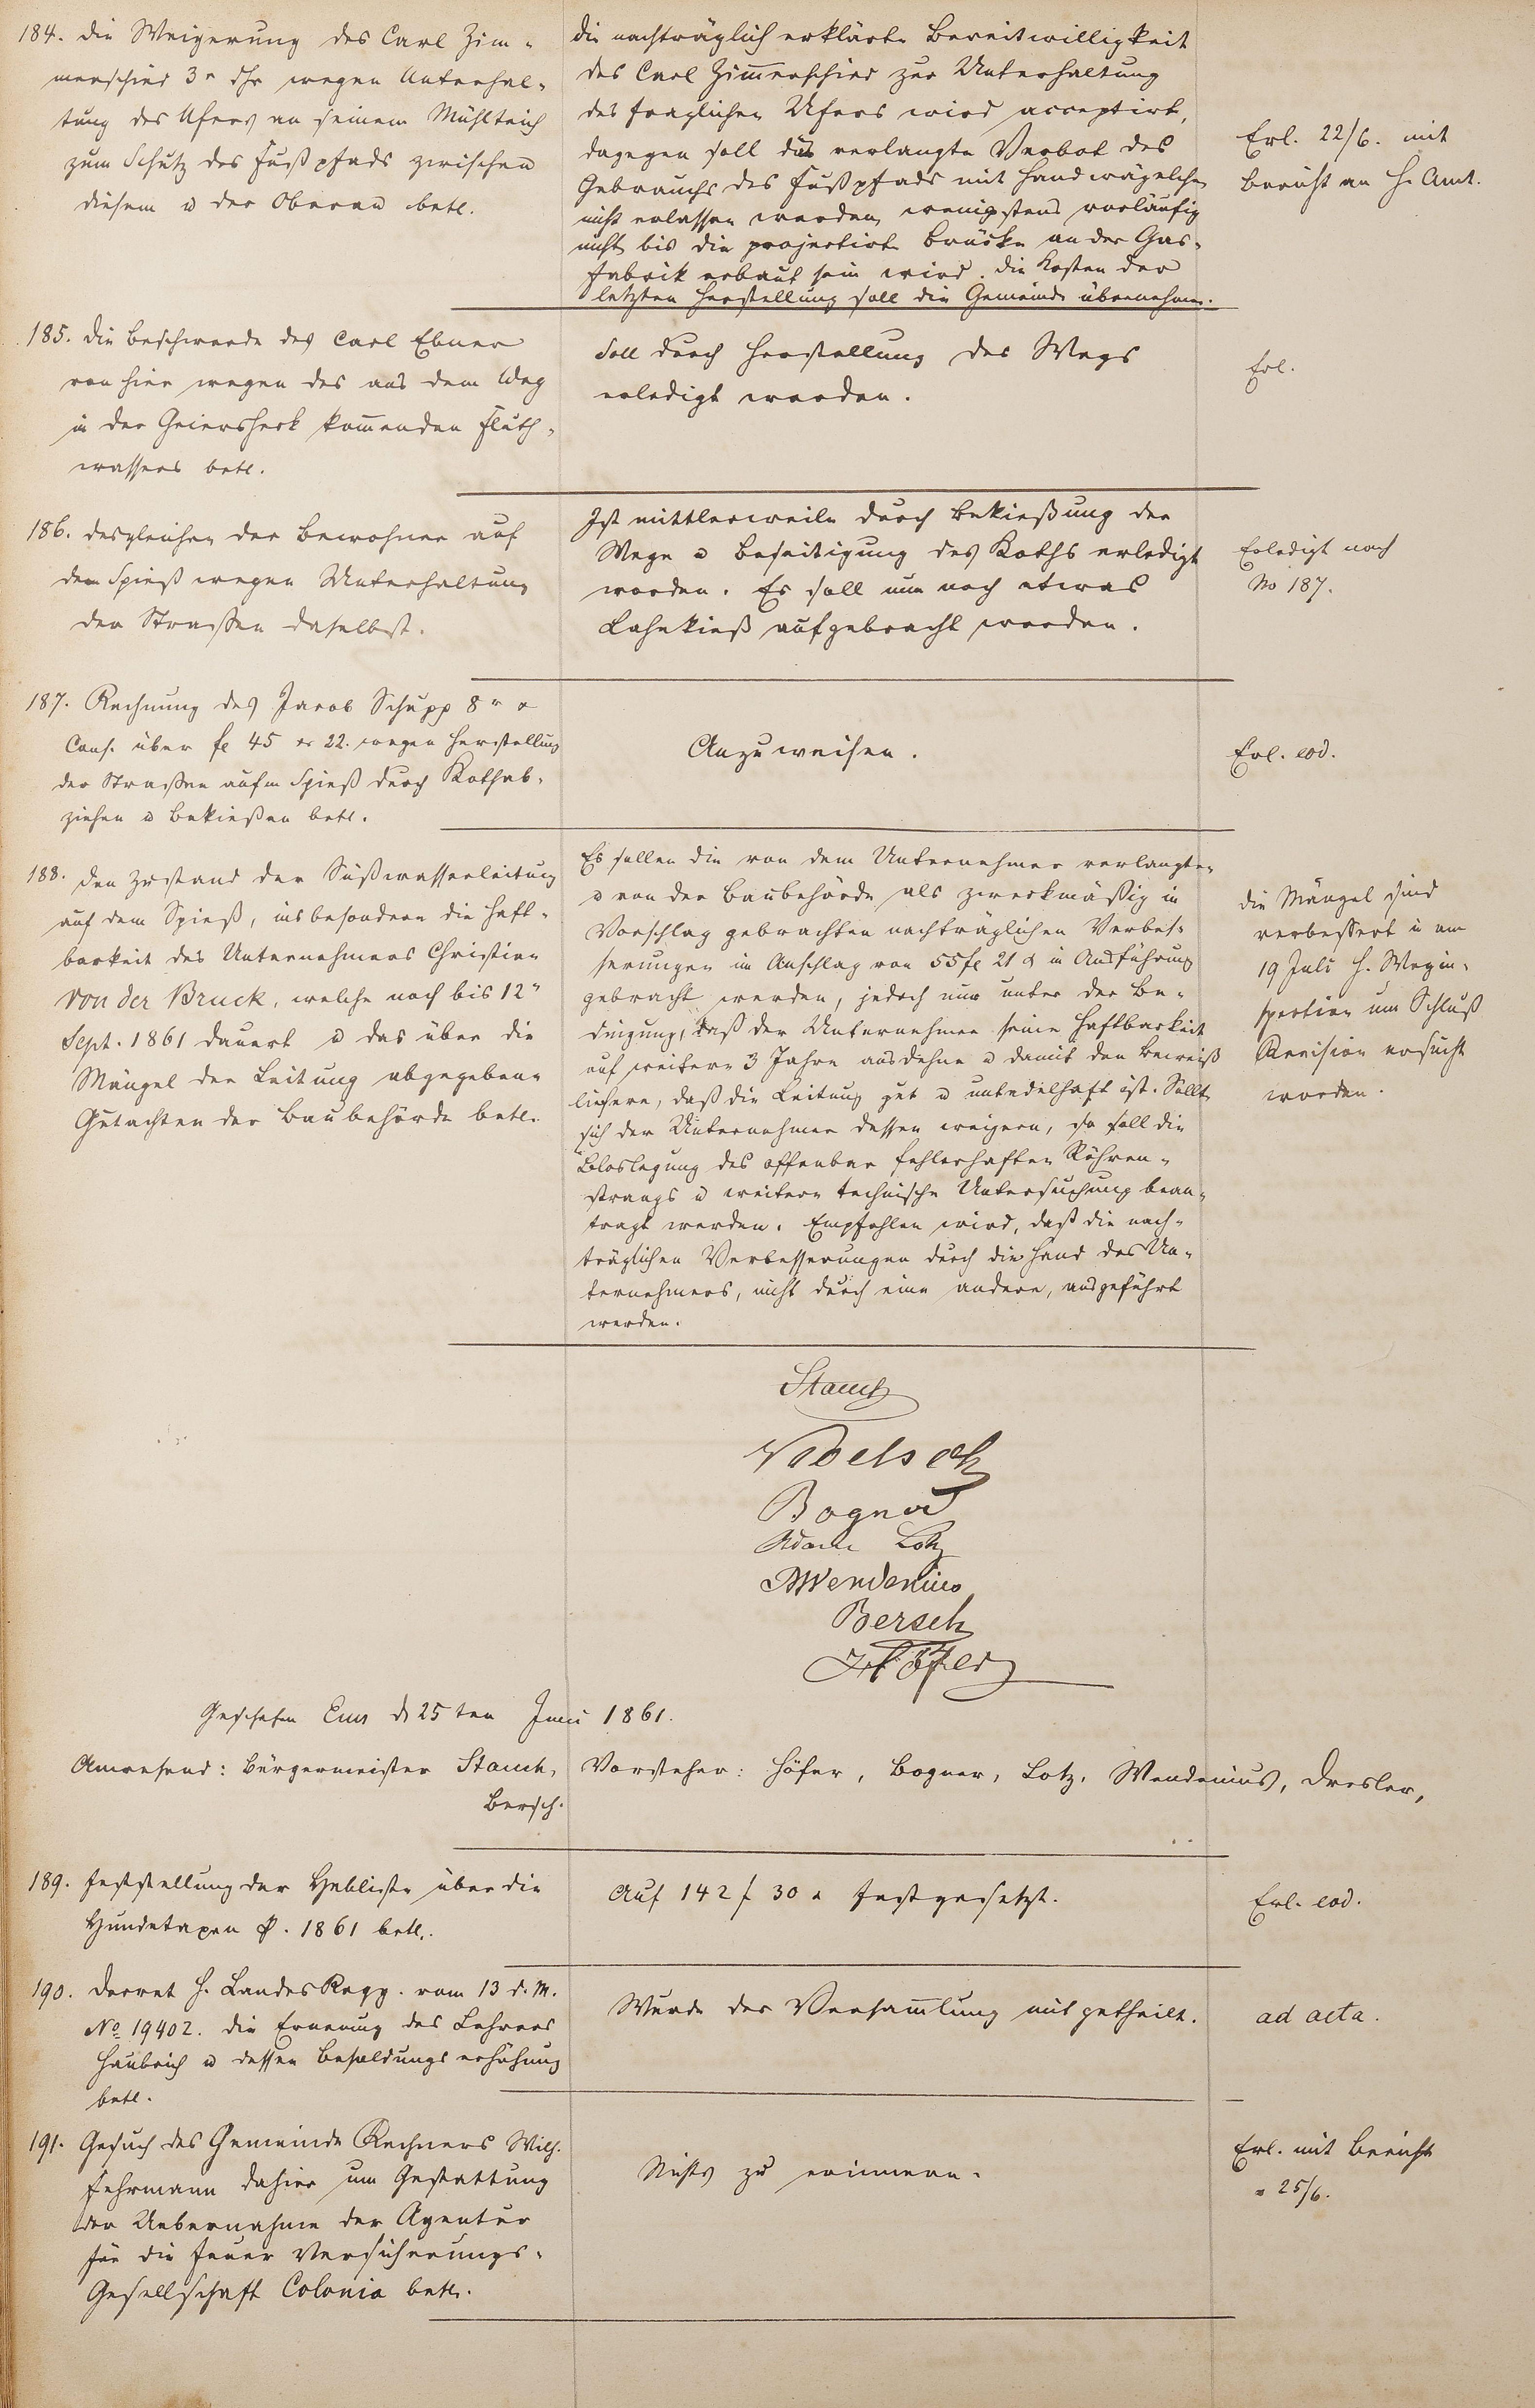 184. die Weigerung des Carl Zim-
merschied 3r dhr wegen Unterhal-
tung des Ufers an seinem Mühlteich
zum Schutz des Fußpfads zwischen
diesem u der Oberau betl.
die nachträglich erklärte Bereitwilligkeit
des Carl Zimmerschied zur Unterhaltung
des fraglichen Ufers wird acceptirt,
dagegen soll das verlangte Verbot des
Gebrauchs des Fußpfads mit Handwägelchen
nicht erlassen werden, wenigstens vorläufig
nicht bis die projectirte Brücke an der Gas-
fabrik erbaut sein wird. die Kosten der
letzten Herstellung soll die Gemeinde übernehmen.
Erl. 22/6. mit
Bericht an H. Amt.
185. die Beschwerde des Carl Ebner
von hier wegen des aus dem Weg
in der Geiersheck kommenden Fluth-
wassers betl.
Soll durch Herstellung des Wegs
erledigt werden.
Erl.
186. desgleichen der Bewohner auf
dem Spieß wegen Unterhaltung
der Straßen daselbst.
Ist mittlerweile durch Bekießung der
Wege u Beseitigung des Koths erledigt
worden. Es soll nun noch etwas
Lahnkieß aufgebracht werden.
Erledigt nach
No 187.
187. Rechnung des Jacob Schupp 8r u
Cons. über fl 45 xr 22. wegen Herstellung
der Straßen aufm Spieß durch Kothab-
ziehen u Bekießen betl.
Anzuweisen.
Erl. eod.
188. den Zustand der Süßwasserleitung
auf dem Spieß, insbesondere die Haft-
barkeit des Unternehmers Christian
von der Bruck, welche noch bis 12n
Sept. 1861 dauert u das über die
Mängel der Leitung abgegebene
Gutachten der Baubehörde betl.
Es sollen die von dem Unternehmer verlangten
u von der Baubehörde als zweckmäßig in
Vorschlag gebrachten nachträglichen Verbes-
serungen im Anschlag von 55 fl 21 x in Ausführung
gebracht werden, jedoch nur unter der Be-
dingung, daß der Unternehmer seine Haftbarkeit
auf weitere 3 Jahre ausdehne u damit den Beweiß
liefere, daß die Leitung gut u untadelhaft ist. Sollte
sich der Unternehmer dessen weigern, so soll die
Bloslegung des offenbar fehlerhaften Röhren-
strangs u weitere technische Untersuchung bean-
tragt werden. Empfohlen wird, daß die nach-
träglichen Verbesserungen durch die Hand des Un-
ternehmers, nicht durch eine andere, ausgeführt
werden.
die Mängel sind
verbessert u am
19 Juli H. Wegin-
spection um Schluß
Revision ersucht
worden.
Stauch
Bogner
Adam Lotz
Wendenius
Bersch
Höfer
Geschehen Ems d 25ten Juni 1861.
Anwesend: Bürgermeister Stauch, Vorsteher: Höfer, Bogner, Lotz, Wendenius, Dresler,
Bersch.
189. Feststellung der Hebliste über die
Hundetaxen p. 1861 betl.
Auf 142 f 30 x festgesetzt.
Erl. eod.
190. Decret H. LandesRegg. vom 13 d. M.
No 19402. die Ernenung des Lehrers
Haubrich u dessen Besoldungserhöhung
betl.
Wurde der Versammlung mitgetheilt.
ad acta.
191. Gesuch des Gemeinde Rechners Wilh.
Fehrmann dahier um Gestattung
der Uebernahme der Agentur
für die Feuer Versicherungs-
Gesellschaft Colonia betl.
Nichts zu erinnern.
Erl. mit Bericht
v 25/6.